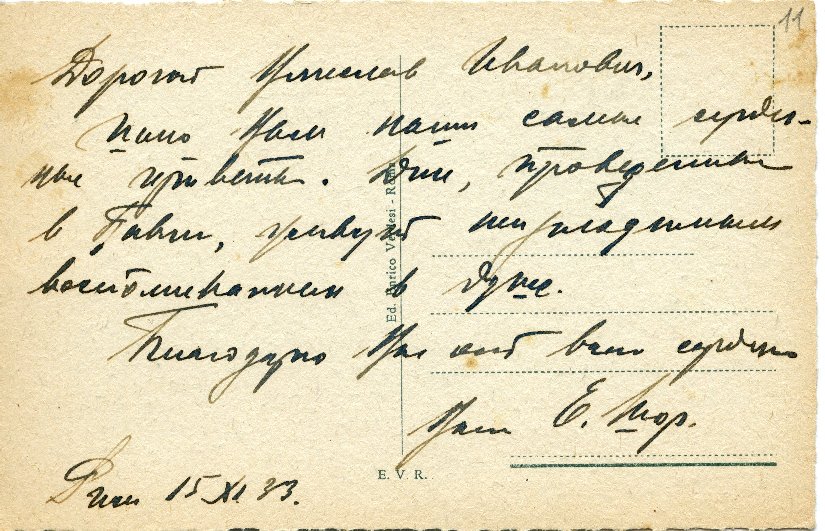 11
Дорогой Вячеслав Иванович,
шлю Вам наши самые сердеч-
ные приветы. Дни, проведенные
в Павии, живут неизгладимым
воспоминанием в душе.
Благодарю Вас от всего сердца
Ваш Е. Шор.
Рим 15 XI 33.
Ed. Enrico Verdesi - Roma
E. V. R.